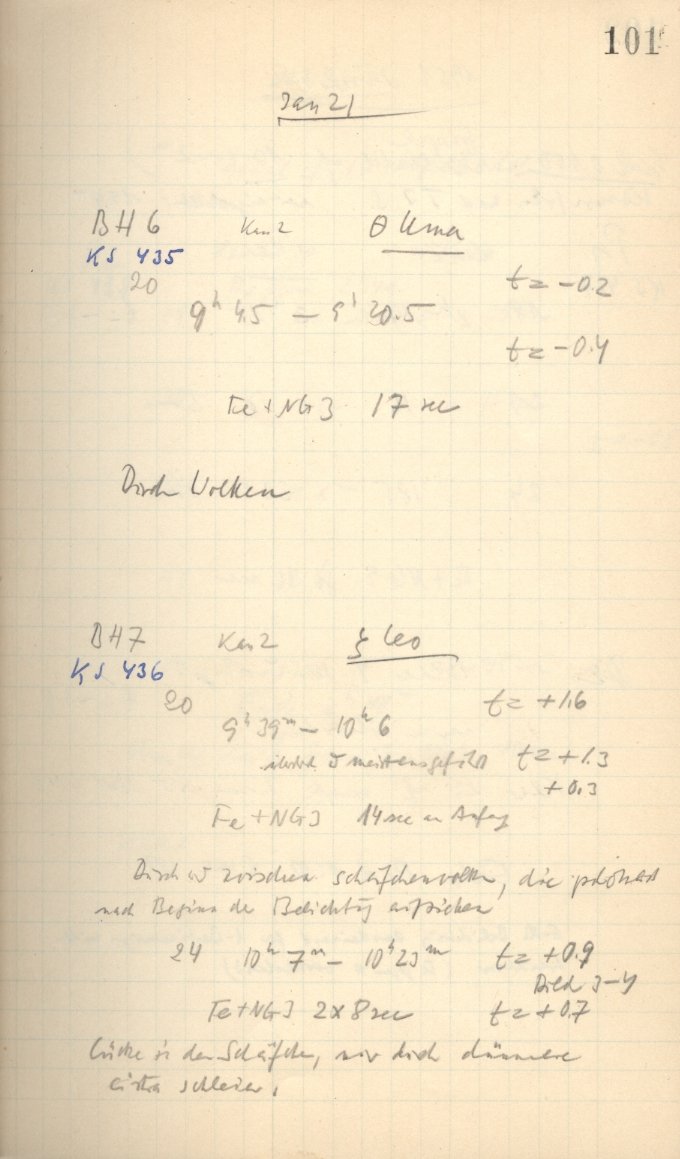 101
Jan 21
BH 6 Kam 2 θ Uma
KS 435
20 t = -0.2
9h 4.5 — 9h 20.5
t = -0.4
Fe + NG 3 17 sec
Durch Wolken
BH 7 Kam 2 ξ Leo
KS 436
20 t = +1.6
9h 39m — 10h 6
meistens geführt t = +1.3
+0.3
Fe + NG 3 14 sec am Anfang
Durch und zwischen Schäfchenwolken, die plötzlich
nach Beginn der Belichtung aufziehen
24 10h 7m — 10h 23m t = +0.9
Bild 3-4
Fe + NG 3 2 x 8 sec t = +0.7
Lücke in den Schäfchen, nur durch dünnere
Cirren schleier.